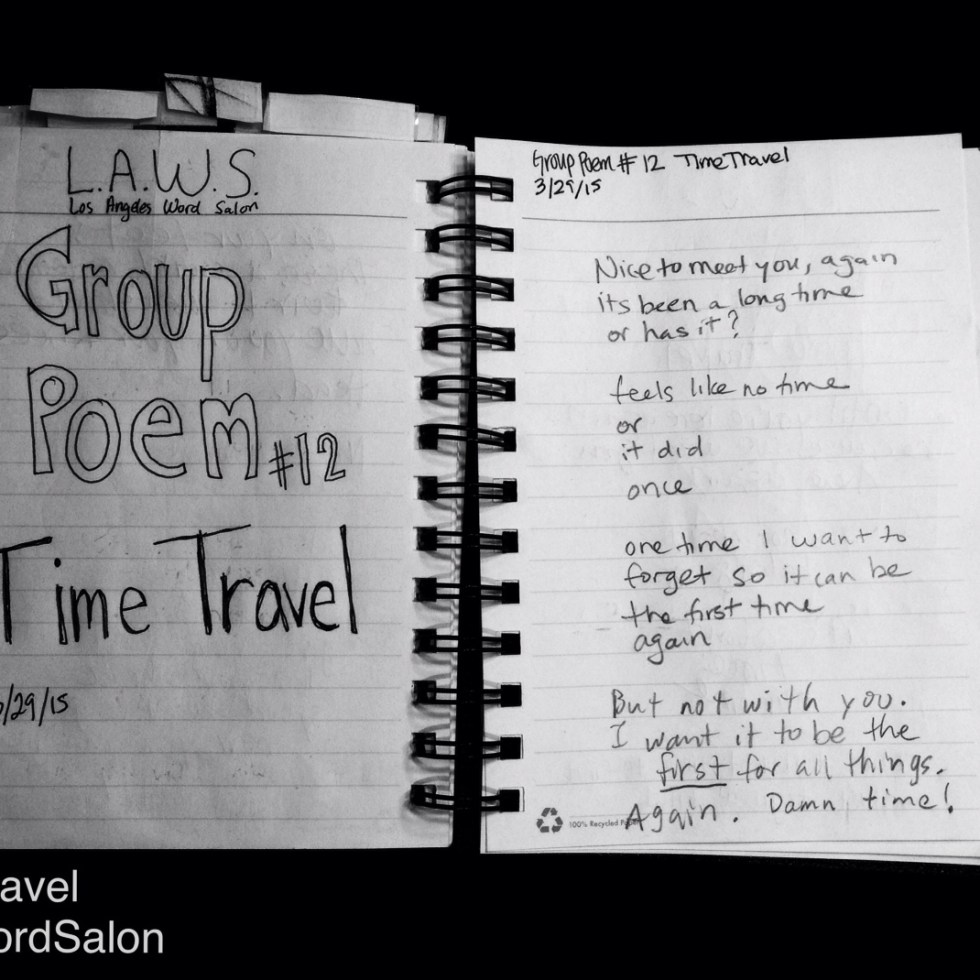 L.A.W.S.
Los Angeles Word Salon
Group
Poem #12
Time Travel
/29/15
Group Poem # 12 Time Travel
3/29/15
Nice to meet you, again
its been a long time
or has it?
feels like no time
or
it did
once
one time I want to
forget so it can be
the first time
again
But not with you.
I want it to be the
first for all things.
Again. Damn, time!
100% Recycled
avel
ordSalon